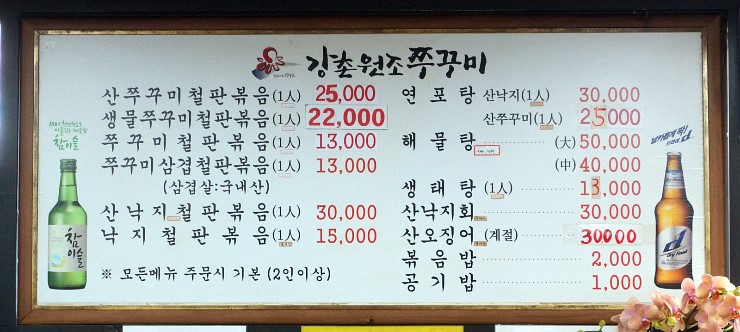 강촌원조쭈꾸미
산쭈꾸미철판볶음(1人) 25,000
생물쭈꾸미철판볶음(1人) 22,000
쭈꾸미철판볶음(1人) 13,000
쭈꾸미삼겹철판볶음(1人) 13,000
(삼겹살:국내산)
산낙지철판볶음(1人) 30,000
낙지철판볶음(1人) 15,000
※ 모든메뉴 주문시 기본 (2인이상)
연포탕 산낙지(1人) 30,000
산쭈꾸미(1人) 25,000
해물탕 (大) 50,000
(中) 40,000
생태탕 (1人) 13,000
산낙지회 30,000
산오징어 (계절) 30000
볶음밥 2,000
공기밥 1,000
참이슬
참이슬
d